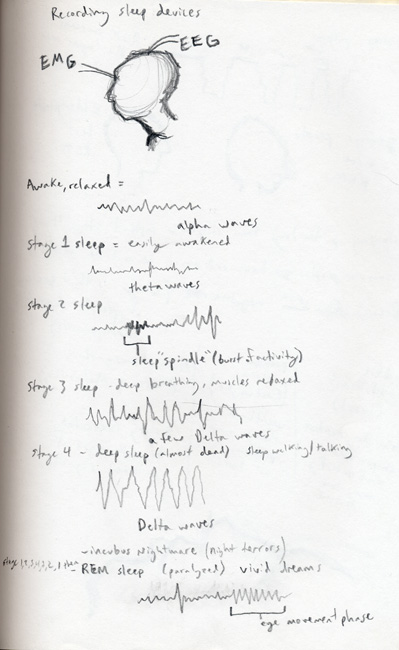 Recording sleep devices
EEG
EMG
Awake, relaxed =
alpha waves
Stage 1 sleep = easily awakened
theta waves
Stage 2 sleep
sleep "spindle" (burst of activity)
Stage 3 sleep - deep breathing, muscles relaxed
a few Delta waves
Stage 4 - deep sleep (almost dead) sleep walking/talking
Delta waves
- incubus nightmare (night terrors)
- REM sleep (paralyzed) vivid dreams
eye movement phase